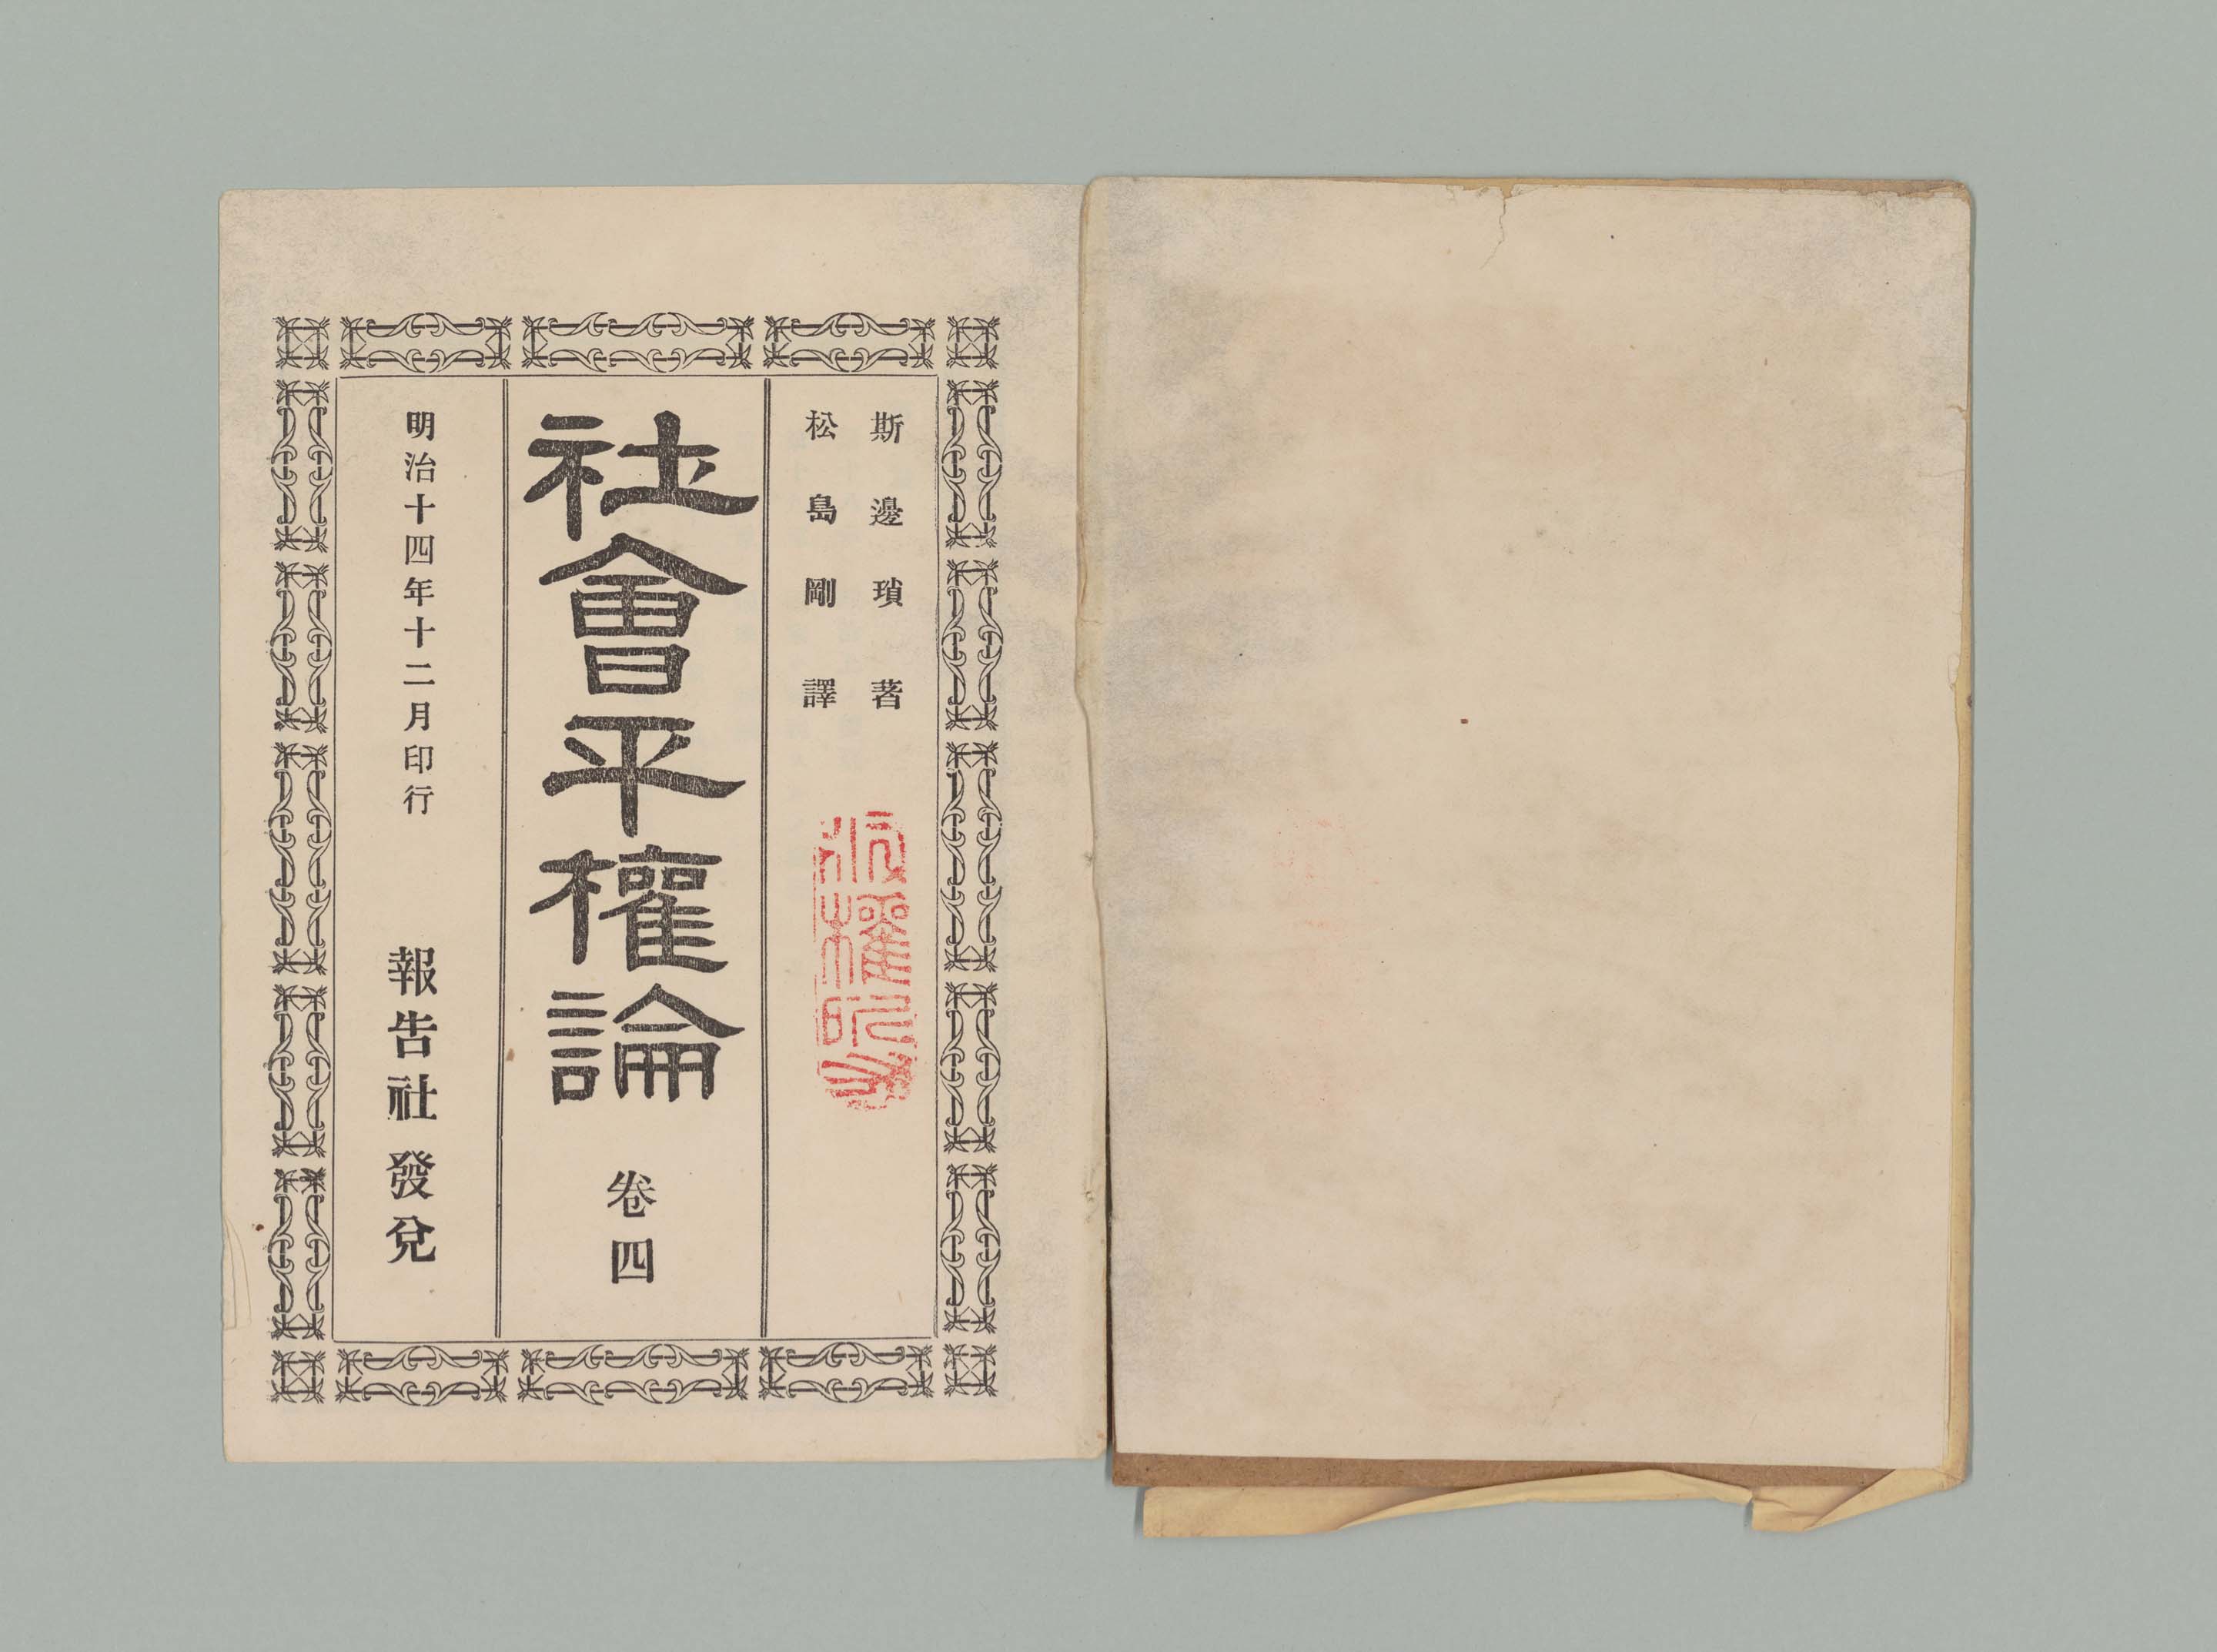 斯邊瑣著
松島剛譯
版權所有
社會平權論 卷四
明治十四年十二月印行 報告社發兌